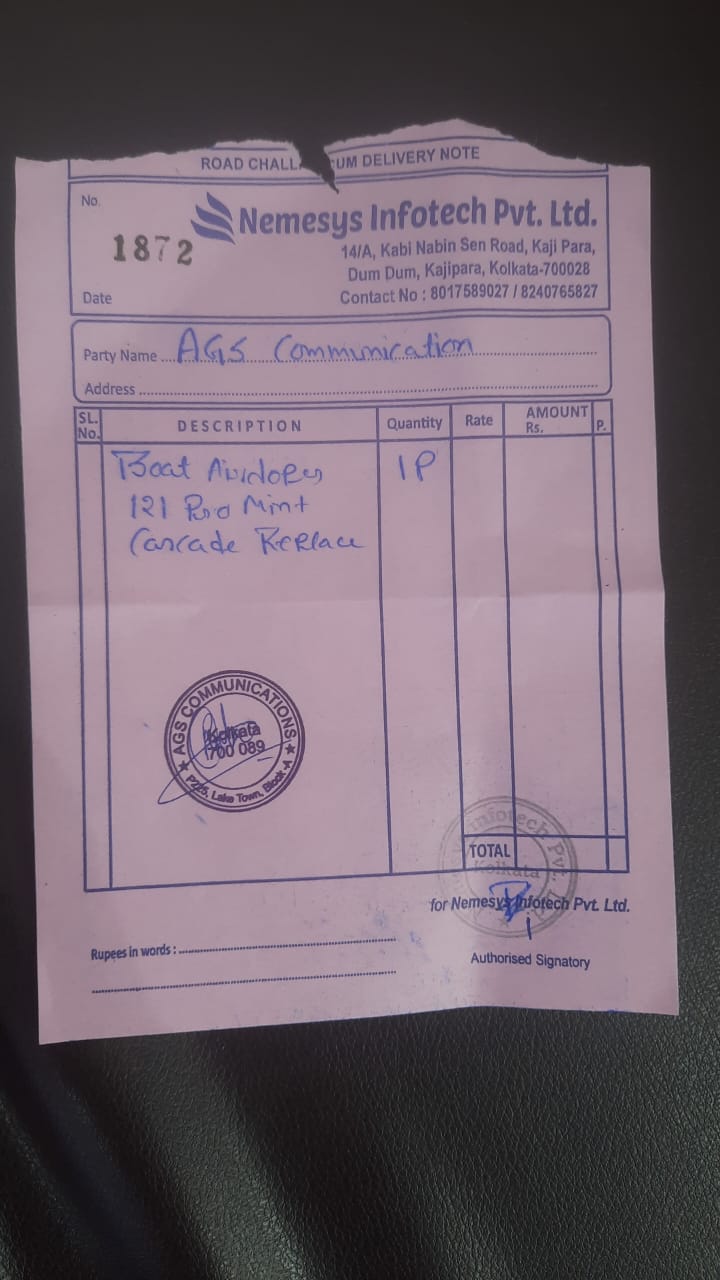 ROAD CHALL UM DELIVERY NOTE
No.
1872
Nemesys Infotech Pvt. Ltd.
14/A, Kabi Nabin Sen Road, Kaji Para,
Dum Dum, Kajipara, Kolkata-700028
Date
Contact No : 8017589027 / 8240765827
Party Name AGS Communication
Address
SL. No. DESCRIPTION Quantity Rate AMOUNT Rs. P.
Boat 1P
121 Pro Mint
Cascade Replace
AGS COMMUNICATIONS
Kolkata
700 089
P225, Lake Town, Block-A
Infotech Pvt. Ltd
Kolkata
TOTAL
for Nemesys Infotech Pvt. Ltd.
Rupees in words :
Authorised Signatory